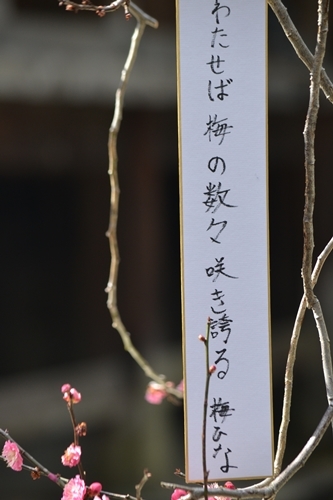 わたせば梅の数々咲き誇る 梅ひな